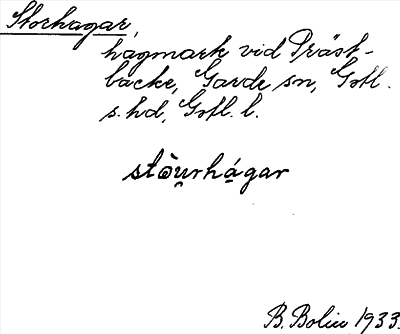 Storhagar,
hagmark vid Präst-
backe, Garde sn, Gotl.
s. hd, Gotl. l.
stòu̯rhágar
B. Bolin 1933.